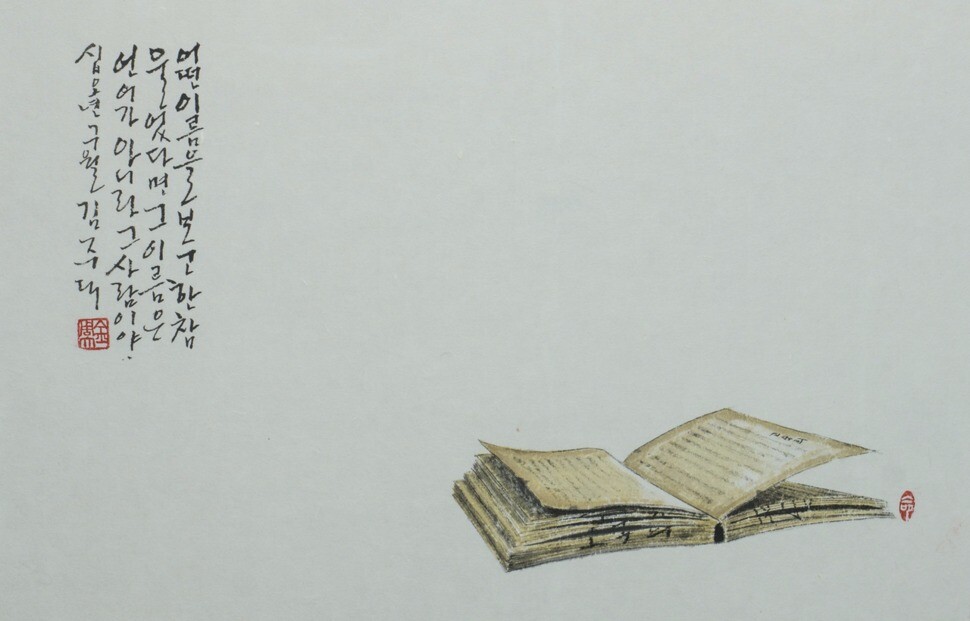 어떤 이름을 보고 한참
울었다면 그 이름은
언어가 아니라 그 사람이야.
십오년 구월 김주대